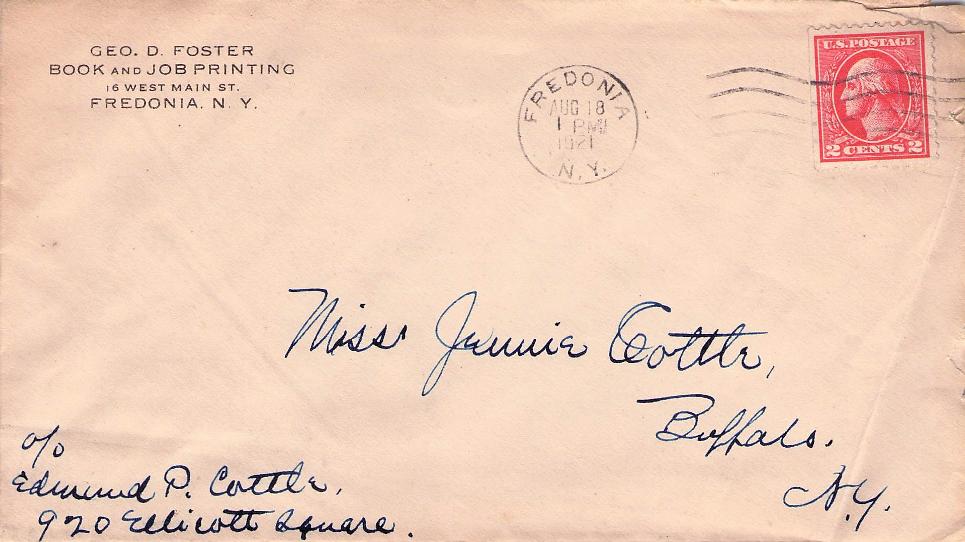 GEO. D. FOSTER
BOOK AND JOB PRINTING
16 WEST MAIN ST.
FREDONIA. N. Y.
FREDONIA
AUG 18
1 PM
1921
N.Y.
U.S. POSTAGE
2 CENTS 2
Miss Jennie Cottle,
Buffalo.
N.Y.
c/o
Edmund P. Cottle,
920 Ellicott Square.